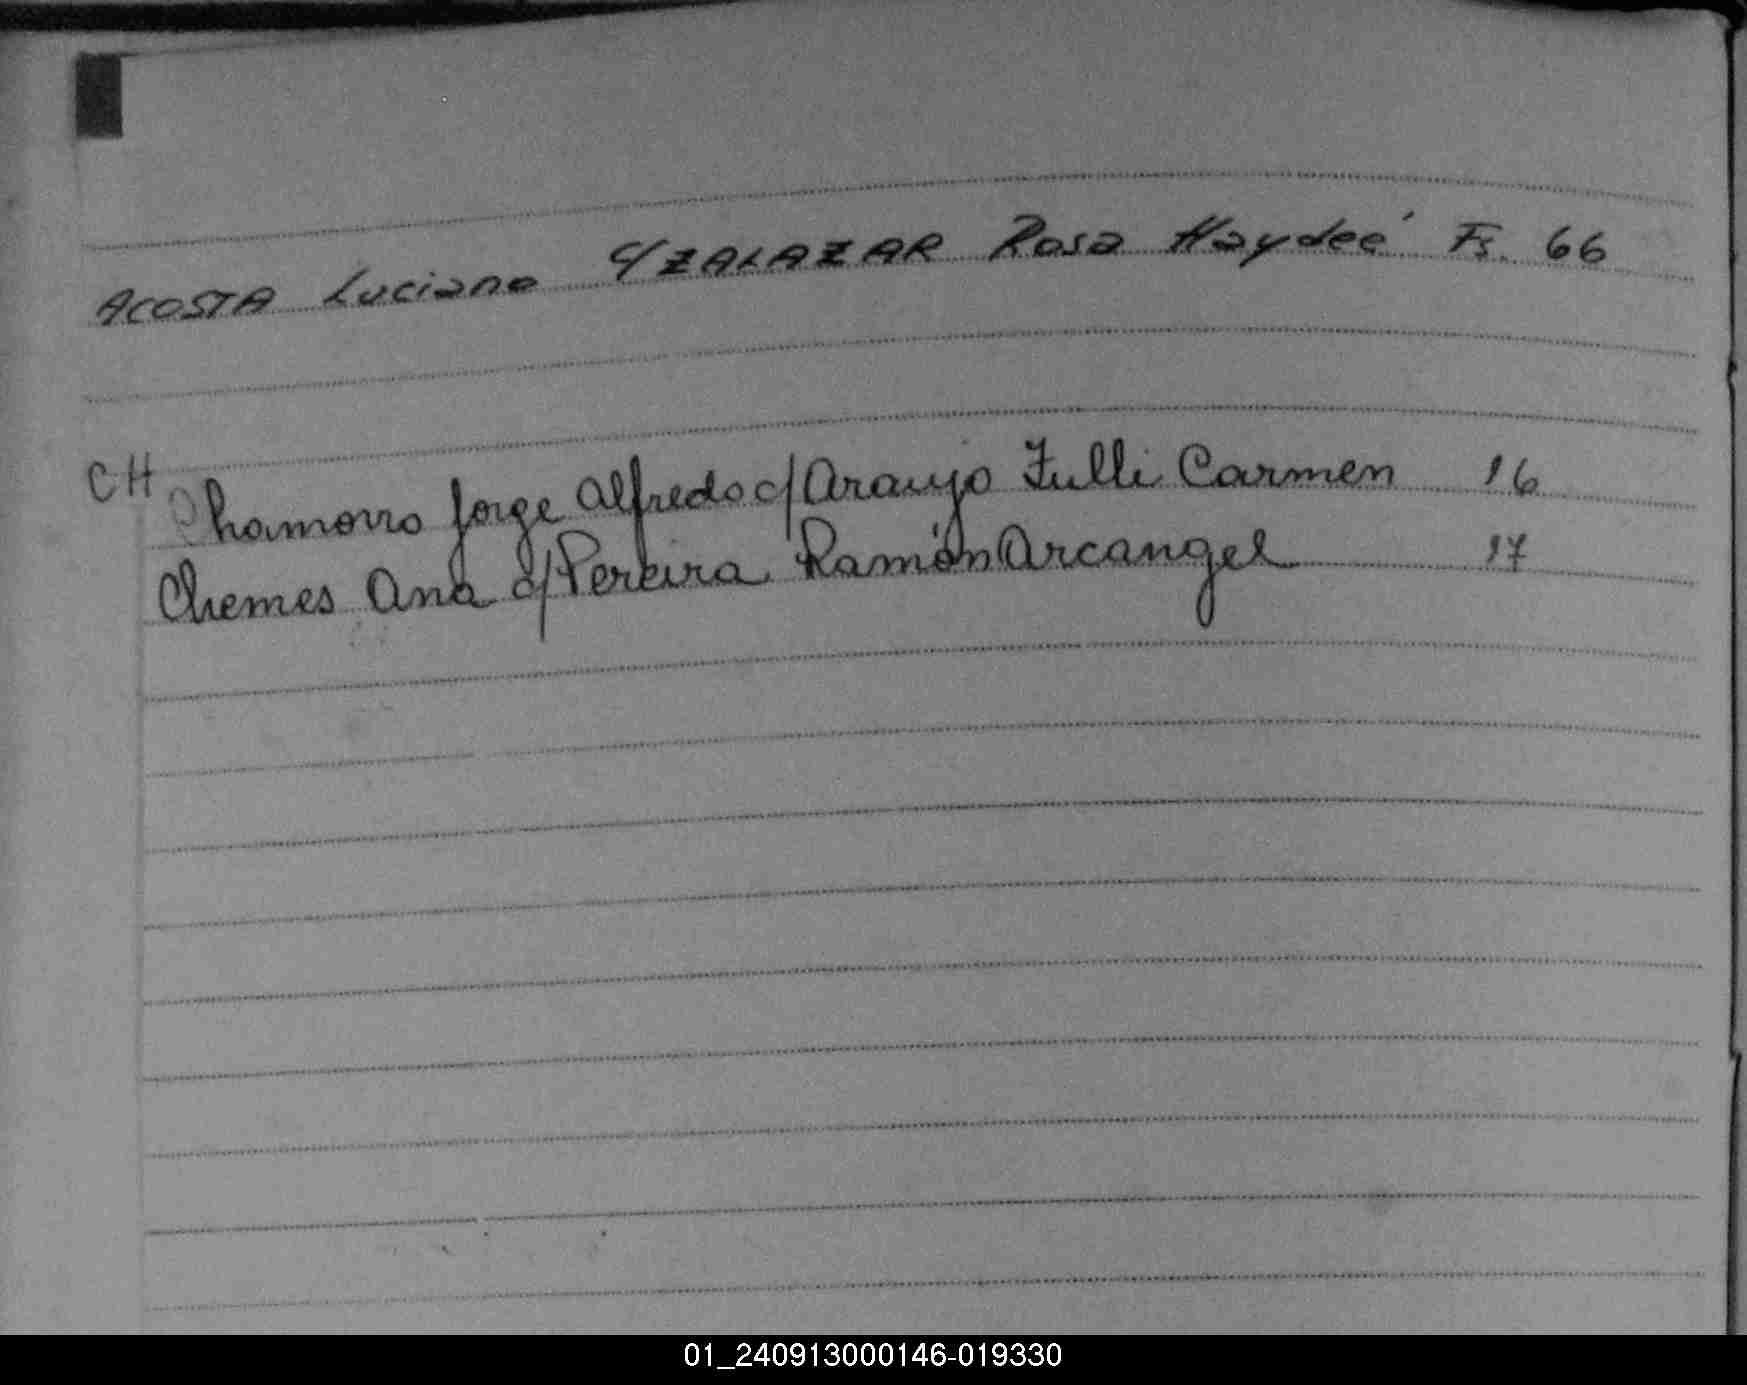 ACOSTA Luciano c/ ZALAZAR Rosa Haydeé Fs. 66
CH
Chamorro Jorge Alfredo c/ Araujo Zulli Carmen 16
Chemes Ana c/ Pereira Ramón Arcangel 17
01_240913000146-019330